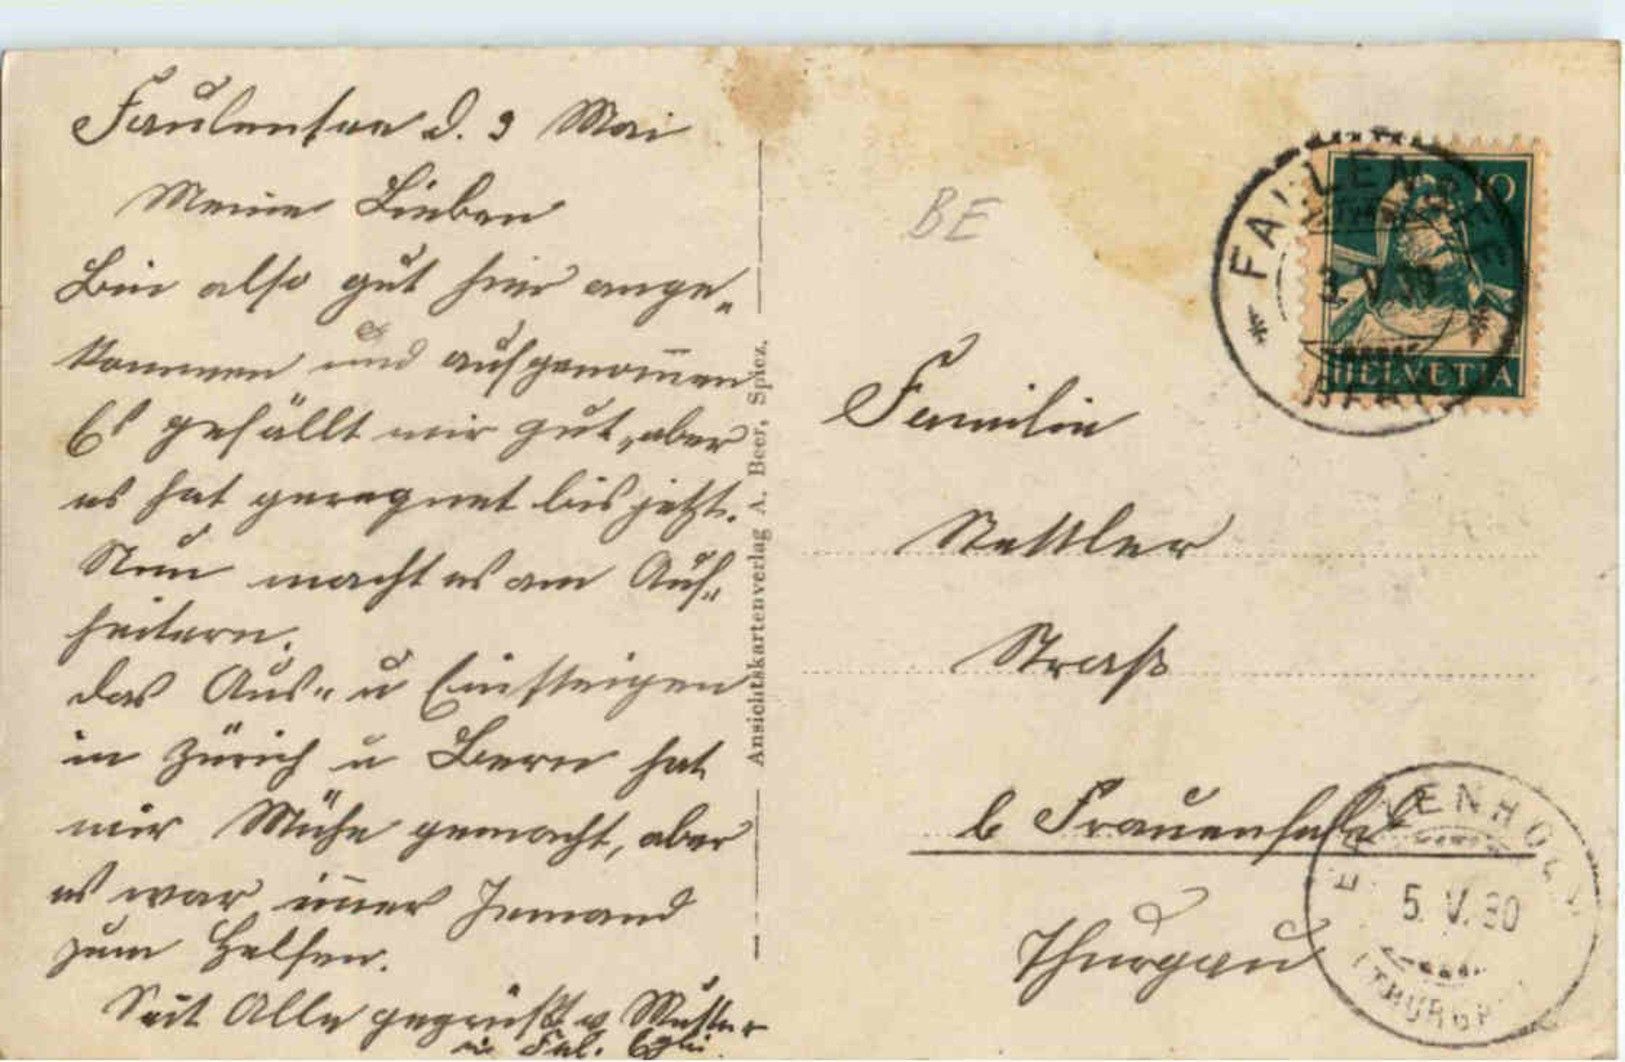 Faulensee d. 3 Mai
Meine Lieben
Bin also gut hier ange-
kommen und aufgenom̅en
Es gefällt mir gut, aber
es hat geregnet bis jetzt.
Nun macht es am Auf-
heitern.
das Aus- u Einsteigen
in Zürich u Bern hat
mir Mühe gemacht, aber
es war im̅er Jemand
zum Helfen.
Seit Alle gegrüßt v Mutter
u Frl. Egli.
Ansichtskartenverlag A. Beer, Spiez.
BE
FAULENSEE
3. V. 30
10
HELVETIA
Familie
Stettler
Straß
b Frauenfeld
Thurgau
5. V. 30
(THURGAU)